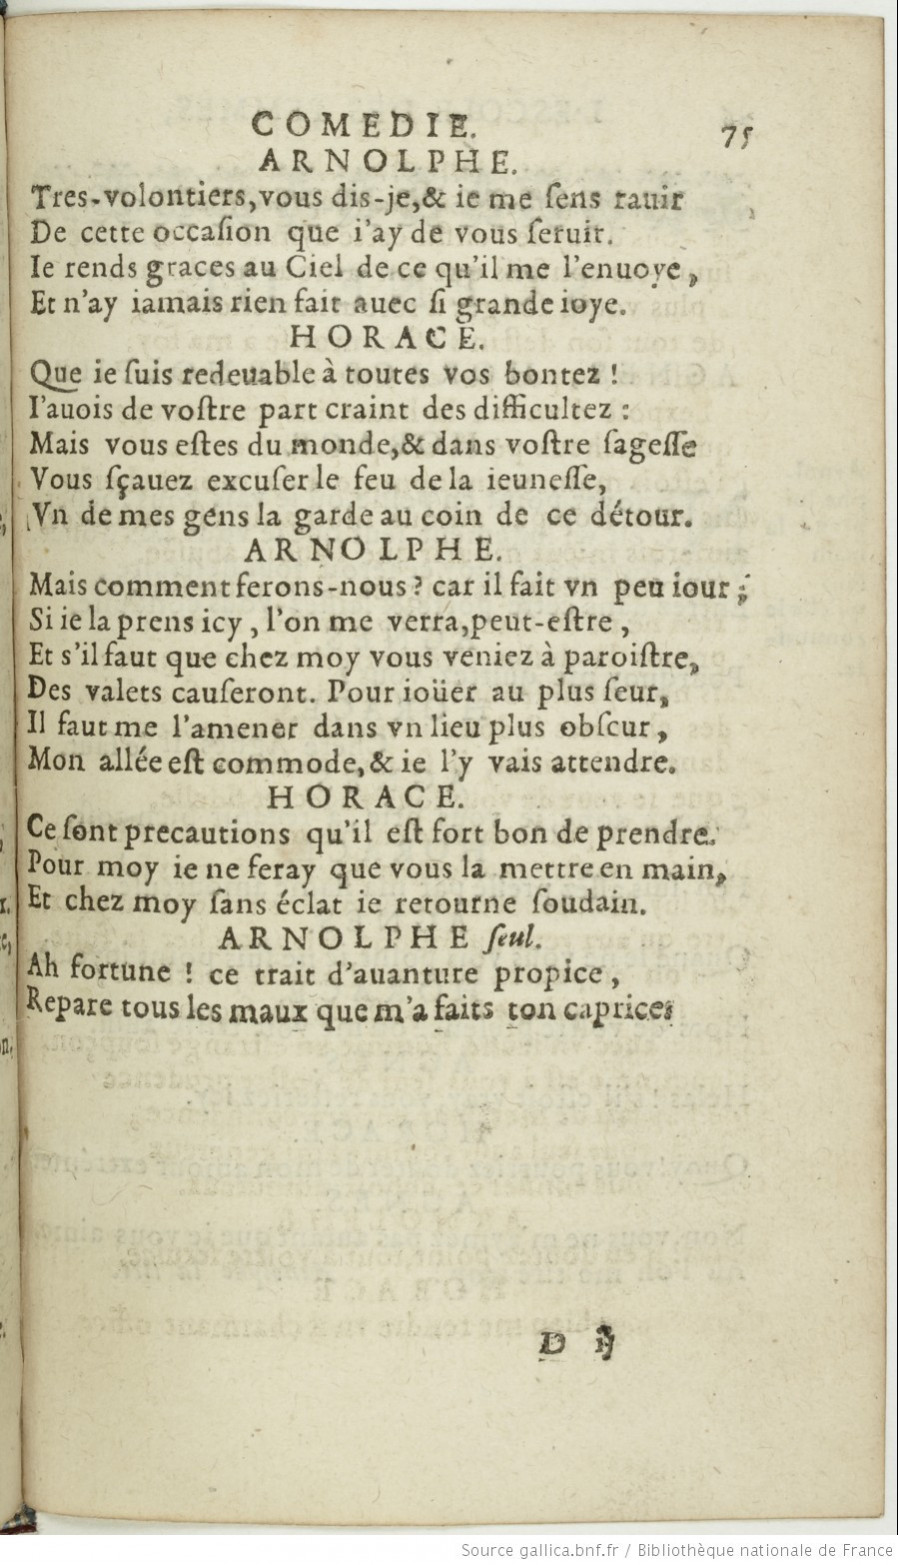 COMEDIE. 75
ARNOLPHE.
Tres-volontiers, vous dis-je, & ie me ſens rauir
De cette occaſion que i'ay de vous ſeruir.
Ie rends graces au Ciel de ce qu'il me l'enuoye,
Et n'ay iamais rien fait auec ſi grande ioye.
HORACE.
Que ie ſuis redeuable à toutes vos bontez !
I'auois de voſtre part craint des difficultez :
Mais vous eſtes du monde, & dans voſtre ſageſſe
Vous ſçauez excuſer le feu de la ieuneſſe,
Vn de mes gens la garde au coin de ce détour.
ARNOLPHE.
Mais comment ferons-nous ? car il fait vn peu iour ;
Si ie la prens icy, l'on me verra, peut-eſtre,
Et s'il faut que chez moy vous veniez à paroiſtre,
Des valets cauſeront. Pour ioüer au plus ſeur,
Il faut me l'amener dans vn lieu plus obſcur,
Mon allée eſt commode, & ie l'y vais attendre.
HORACE.
Ce ſont precautions qu'il eſt fort bon de prendre.
Pour moy ie ne feray que vous la mettre en main,
Et chez moy ſans éclat ie retourne ſoudain.
ARNOLPHE ſeul.
Ah fortune ! ce trait d'auanture propice,
Repare tous les maux que m'a faits ton caprice;
D ij
Source gallica.bnf.fr / Bibliothèque nationale de France